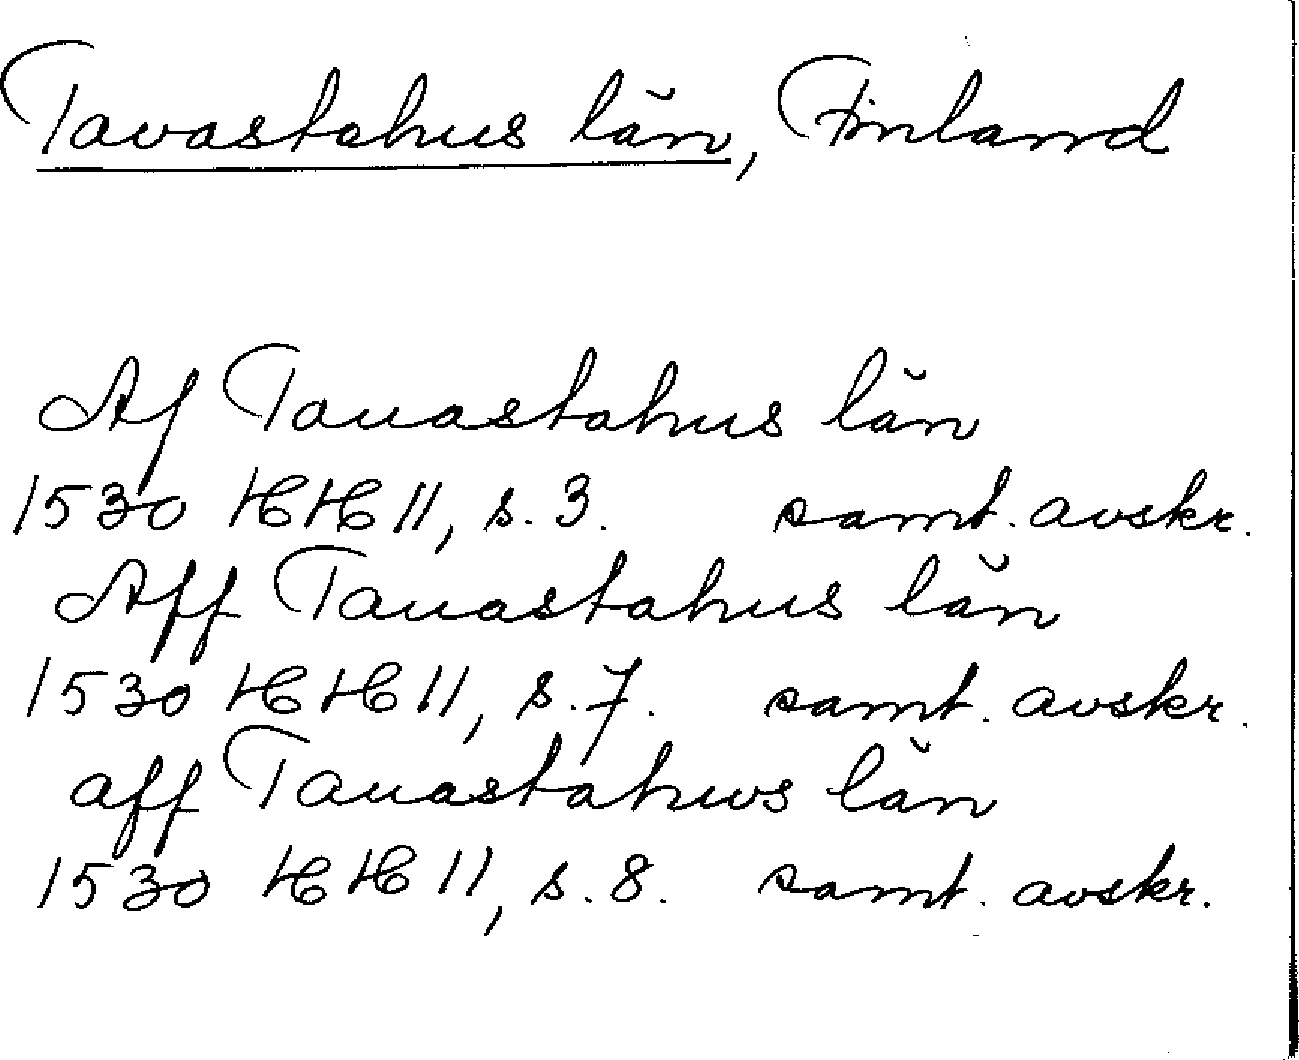 Tavastehus län, Finland
Af Tauastahus län
1530 HH 11, s. 3. samt. avskr.
Aff Tauastahus län
1530 HH 11, s. 7. samt. avskr.
aff Tauastahws län
1530 HH 11, s. 8. samt. avskr.